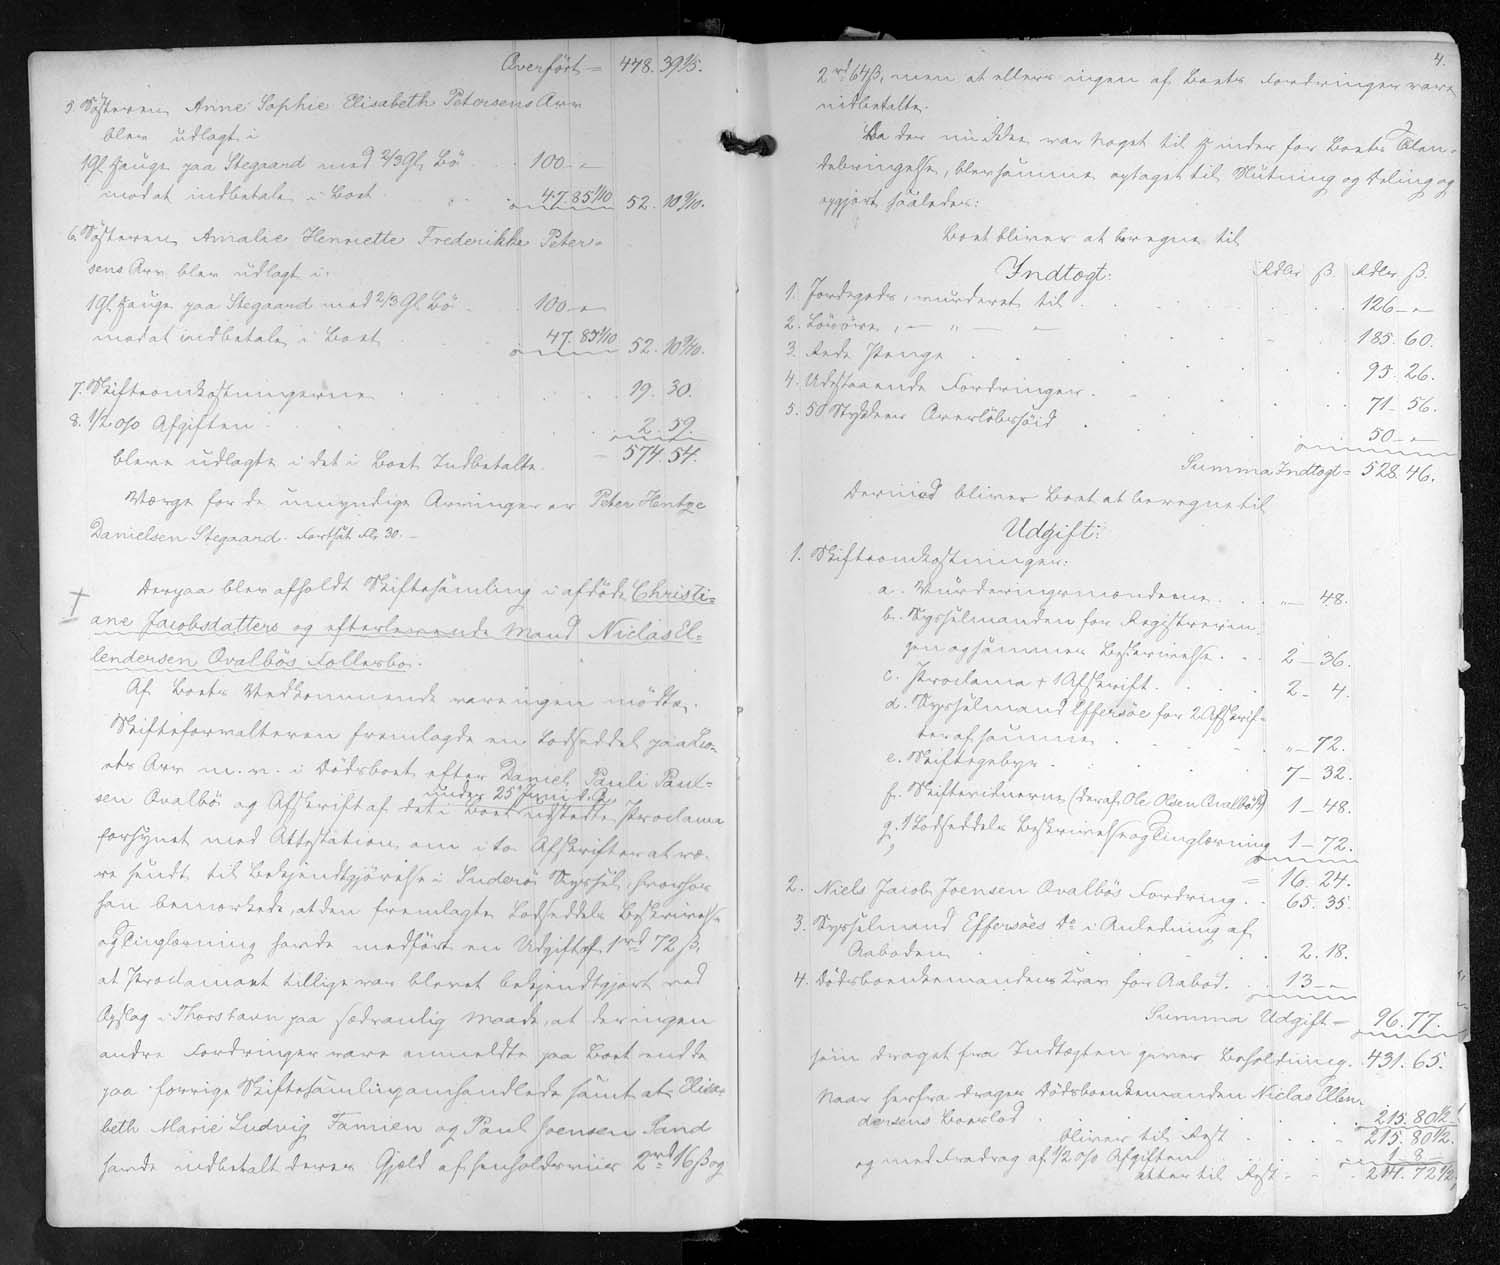 Overført = 478. 39 1/5.
5. Søsteren Anne Sophie Elisabeth Petersens Arv
blev udlagt i
1 Gl Hauge paa Stegaard med 2/3 Gl Bø . . 100 - "
mod at indbetale i Boet . . 47. 85 1/10 52. 10 9/10.
6. Søsteren Amalie Henriette Frederikke Peter-
sens Arv blev udlagt i:
1 Gl Hauge paa Stegaard med 2/3 Gl Bø . . 100 - "
mod at indbetale i Boet . . 47. 85 1/10 52. 10 9/10.
7. Skifteomkostningerne . . . 19. 30.
8. 1/2 o/o Afgiften . . . 2. 59.
bleve udlagte i det i Boet Indbetalte. - 574. 54.
Værge for de umyndige Arvinger er Peter Hentze
Danielsen Stegaard. Fortsat Fl. 30. -
Derpaa blev afholdt Skiftesamling i afdøde Christi-
ane Jacobsdatters og efterlevende Mand Niclas El-
lendersen Ovalbøs Fællesbo.
Af Boets Vedkommende vare ingen mødte.
Skifteforvalteren fremlagde en Lodseddel paa Bo-
ets Arv m. v. i Dødsboet efter Daniel Pauli Paul-
sen Ovalbø og Afskrift af det i Boet under 25 Juni d. A. udstedte Proclama
forsynet med Attestation om i to Afskrifter at væ-
re sendt til Bekjendtgjørelse i Suderø Syssel, hvorhos
han bemærkede, at den fremlagte Lodseddels Beskrivelse
og Tinglæsning havde medført en Udgift af 1 rd 72 ß,
at Proclamaet tillige var blevet bekjendtgjort ved
Opslag i Thorshavn paa sædvanlig Maade, at der ingen
andre Fordringer vare anmeldte paa Boet end de
paa forrige Skiftesamling omhandlede samt at Elisa-
beth Marie Ludvig Famien og Paul Joensen Sand
havde indbetalt deres Gjæld af henholdsviis 2 rd 16 ß og
4.
2 rd 64 ß, men at ellers ingen af Boets Fordringer vare
indbetalte.
Da der nu ikke var noget til Hinder for Boets Tilen-
debringelse, blev samme optaget til Slutning og Deling og
opgjort saaledes:
Boet bliver at beregne til
Indtægt: Rdlr ß. Rdlr ß.
1. Jordegods, vurderet til . . . 126 - "
2. Løsøre, - " - . . . 185. 60.
3. Rede Penge . . . 95. 26.
4. Udestaaende Fordringer . . . 71 - 56.
5. 50 Stykker . . . 50 - "
Summa Indtægt = 528. 46.
Derimod bliver Boet at beregne til
Udgift:
1. Skifteomkostninger:
a. Vurderingsmændene . . . " - 48.
b. Sysselmanden for Registrerin-
gen og sammes Beskrivelse . . . 2 - 36.
c. Proclama + 1 Afskrift . . . 2 - 4.
d. Sysselmand Effersøe for 2 Afskrif-
ter af samme . . . " - 72.
e. Skiftegebyr . . . 7 - 32.
f. Skiftevidnerne (deraf Ole Olsen Ovalbø) 1 - 48.
g. 1 Lodseddels Beskrivelse og Tinglæsning 1 - 72.
= 16. 24.
2. Niels Jacob Joensen Ovalbøs Fordring . . 65. 35.
3. Sysselmand Effersøes do i Anledning af
Aaboden . . . 2. 18.
4. Dødsboenkemandens Krav for Aabod. . . 13 - "
Summa Udgift = 96. 77.
som draget fra Indtægten giver Beholdning . 431. 65.
Naar herfra drages Dødsboenkemanden Niclas Ellen-
dersens Boeslod . . . 215. 80 1/2.
bliver til Rest . . . 215. 80 1/2.
og med Fradrag af 1/2 o/o Afgiften . . . 1 - 8 -
atter til Rest . . . 214. 72 1/2,